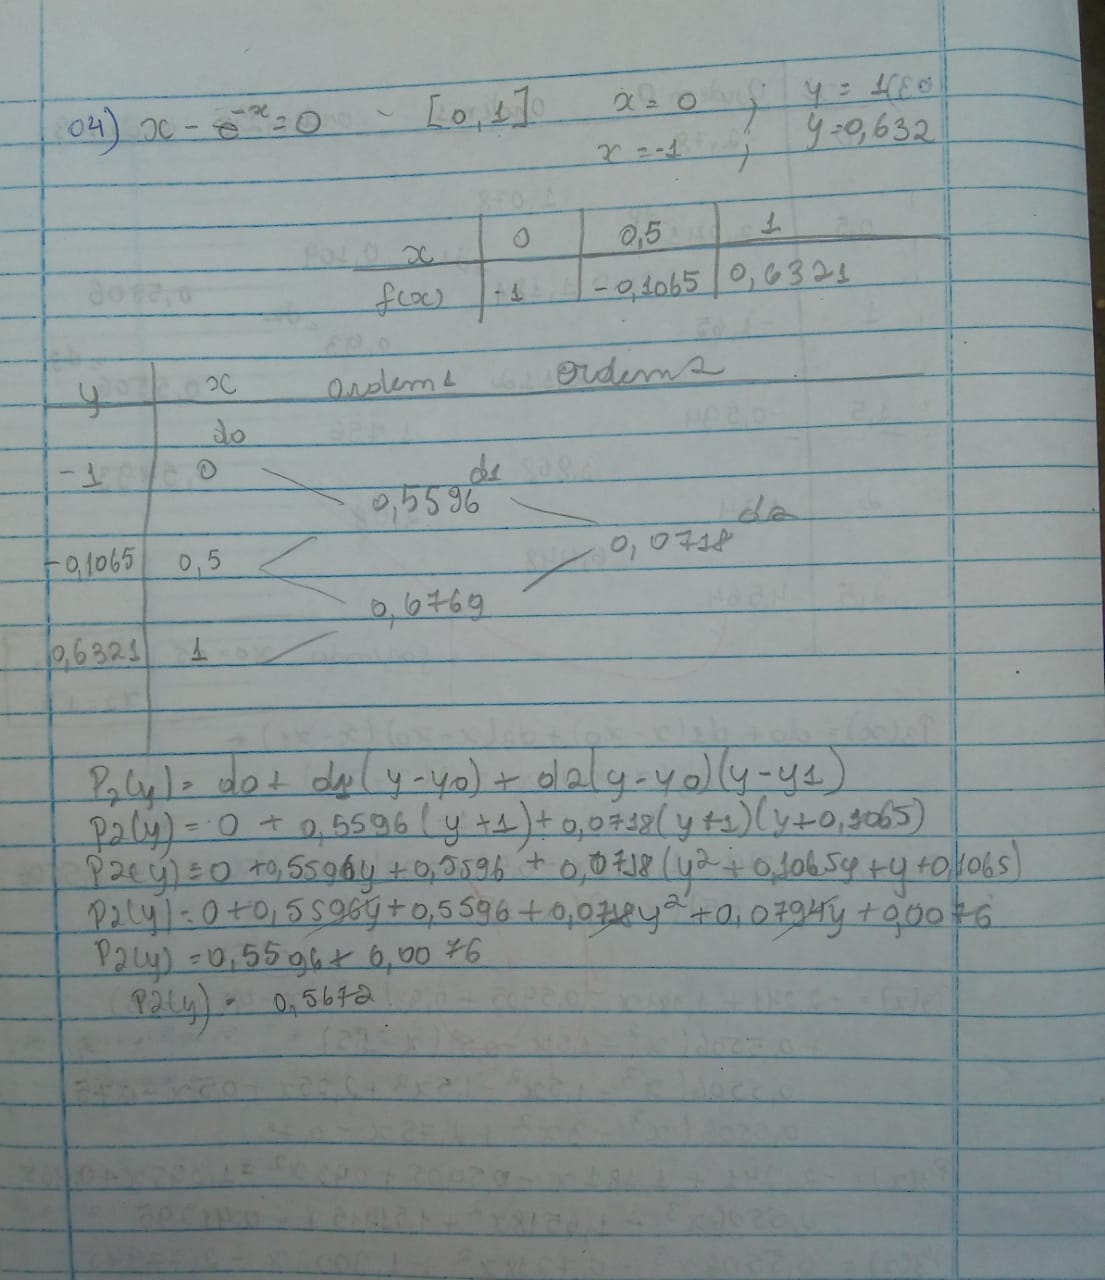 04) x - e^-x = 0 - [0,1] x = 0 ; y = 1
x = -1 ; y = 0,632
x 0 0,5 1
f(x) -1 -0,1065 0,6321
y x ordem 1 ordem 2
do
-1 0 d1
0,5596 d2
-0,1065 0,5 0,0718
0,6769
0,6321 1
P2(y) = do + d1(y-y0) + d2(y-y0)(y-y1)
P2(y) = 0 + 0,5596(y+1) + 0,0718(y+1)(y+0,1065)
P2(y) = 0 + 0,5596y + 0,5596 + 0,0718(y² + 0,1065y + y + 0,1065)
P2(y) = 0 + 0,5596y + 0,5596 + 0,0718y² + 0,0794y + 0,0076
P2(y) = 0,5596 + 0,0076
P2(y) = 0,5672